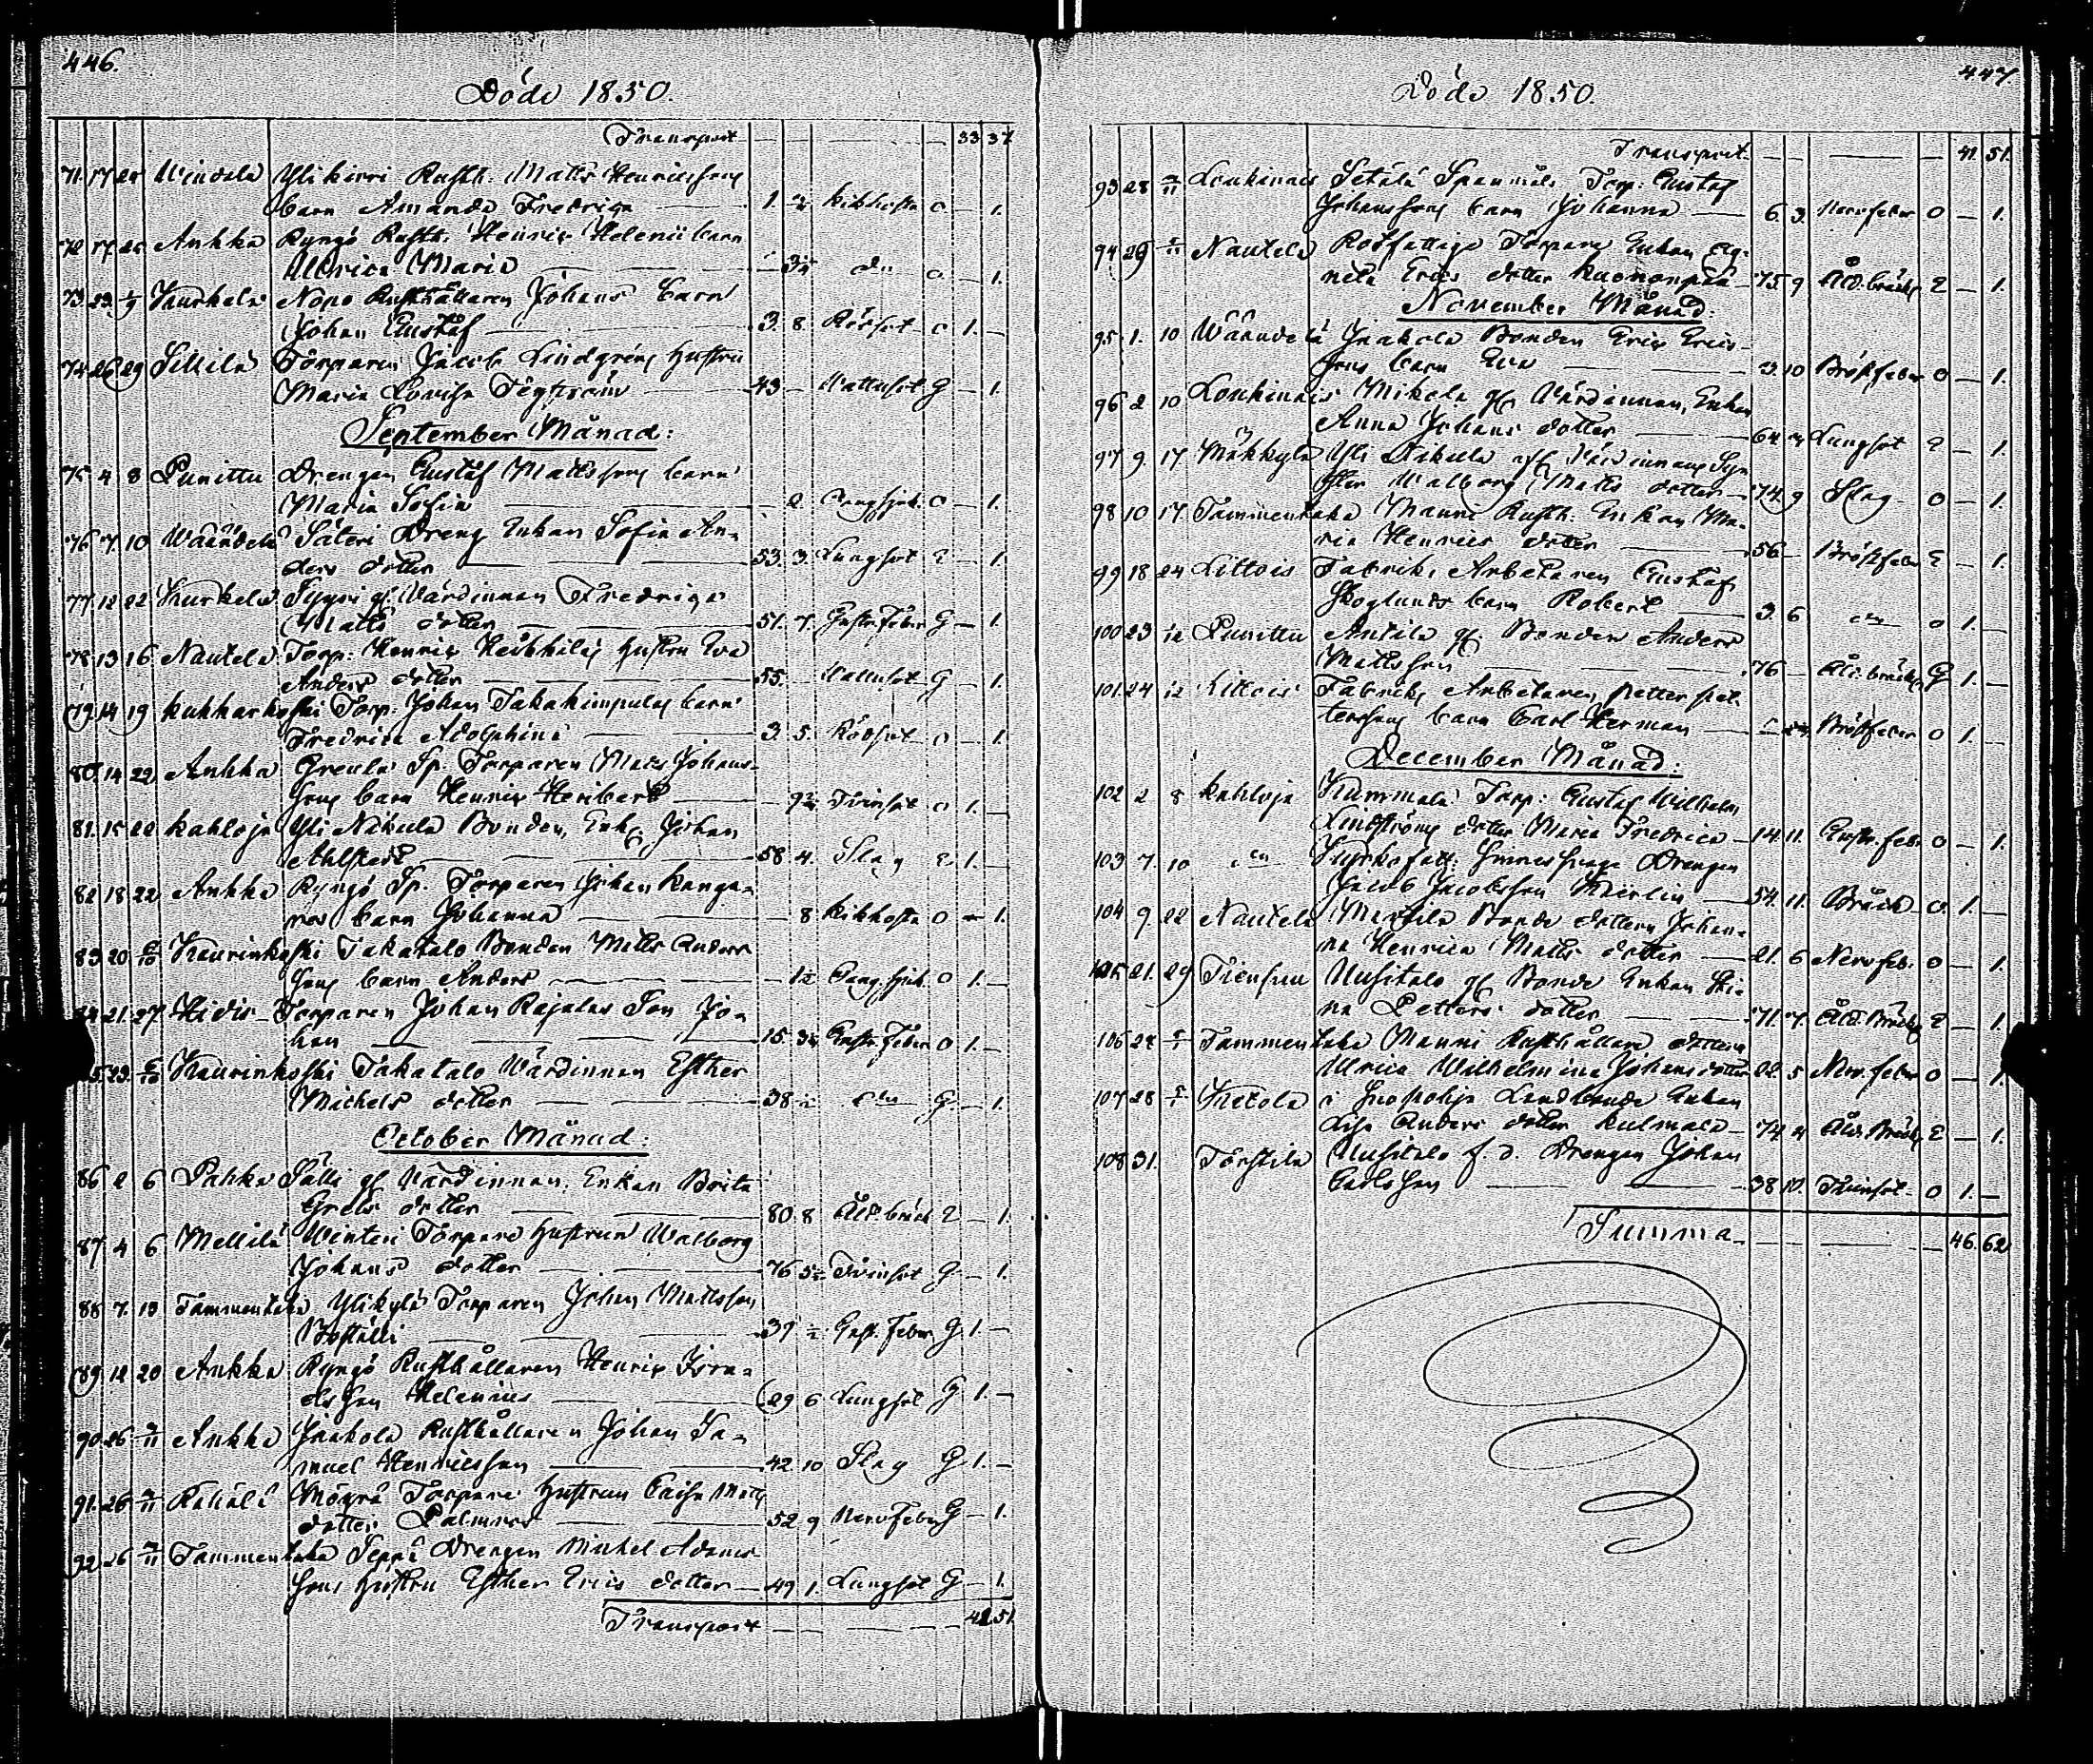 446.
Döde 1850.
Transport — — — — 33 37
71. 17 25 Windala Yli kirri Rusth: Matts Henricssons
barn Amanda Fredrica — 1. Kikhosta o — 1.
72 17 25 Aukka Ryngö Rusth: Henric Helenii barn
Ulrica Maria — do o — 1.
73. 23 Kurkela Nopo Rusthållaren Johans barn
Johan Gustaf — 3. 8. Rödsot o 1. —
74 26 29 Sillilä Torparen Jacob Lindgréns hustru
Maria Lovisa — 43 — Vattusot G — 1.
September Månad:
75 4 8 Punittu Drengen Gustaf Mattssons barn
Maria Sofia — 2. o — 1.
76 7 10 Wäändelä Säteri Dreng Enkan Sofia An-
ders dotter — 53. 3. Lungsot E — 1.
77 12 22 Kurkela gl. Värdinnan Fredrica
Matts dotter — 51. 7. Gastr. Feber G — 1.
78. 13 16 Nautela Torp: Henric Heikkiläs hustru Eva
Anders dotter — 55. Vattusot G — 1.
79. 14 19 Kukkarkoski Torp: Johan Takakimpulas barn
Fredrica Adolphina — 3. 5. Rödsot o — 1.
80. 14 22 Aukka Greula Sp. Torparen Matts Johans-
sons barn Henric Heribert — Tvinsot o 1. —
81. 15 22 Kahloja Yli Näkulä Bonden, Enkl. Johan
Ahlstedt — 58 4. Slag E 1. —
82 18 22 Aukka Ryngö Sp. Torparen Johan Kanga-
res barn Johanna — 8 Kikhosta o — 1.
83 20 Kaurinkoski Takatalo Bonden Matts Anders-
sons barn Anders — o 1. —
84 21. 27 Hidis Torparen Johan Rajalas Son Jo-
han — 15. Gastr. Feber o 1. —
85. 23. Kaurinkoski Takatalo Värdinnan Esther
Michels dotter — 38 do G — 1.
October Månad:
86 2 6 Pahka Sälli gl. Värdinnan, Enkan Brita
Grels dotter — 80. 8 Åld. bräck E — 1.
87 4 6 Mellilä Winteri Torpare hustrun Walborg
Johans dotter — 76 Tvinsot G — 1.
88 7. 13 Tammentaka Ylikylä Torparen Johan Mattsson
— 37 Gast. Feber G 1. —
89 12 20 Aukka Ryngö Rusthållaren Henric Isra-
elsson Helenius — 29 6 Lungsot G 1. —
90. 26 Aukka Jaakola Rusthållaren Johan Sa-
muel Henricsson — 42 10 Slag G 1. —
91. 26 Rähälä Torpare hustrun Caisa Matts
dotter Palmros — 52 9 Nerv Feber G — 1.
92 26 Tammentaka Seppä Drengen Michel Adams-
sons hustru Esther Erics dotter — 49 1. Lungsot G — 1.
Transport — — — 41 51
447
Döde 1850.
Transport — — — — 41. 51.
93 28 Loukinais Setälä Spanmåls Torp: Gustaf
Johanssons barn Johanna — 6 3. Nervfeber o — 1.
94 29 Nautela Rotfattige Torpare Enkan Ag-
neta Erics dotter — 75. 9 Åld. bräck E — 1.
November Månad:
95 1. 10 Wäändelä Jaakola Bonden Eric Erics-
sons barn Eva — 3. 10 Bröstfeber o — 1.
96 2 10 Loukinais Mikola gl. Värdinnan, Enkan
Anna Johans dotter — 64 Lungsot E — 1.
97 9. 17 Mäkkylä Yli gl. Värdinnans Sy-
ster Walborg Matts dotter — 74 9 Slag o — 1.
98 10 17 Tammentaka Manni Rusth. Enkan Ma-
ria Henrics dotter — 56 — Bröstfeber E — 1.
99 18 24 Littois Fabriks Arbetaren Gustaf
Skoglunds barn Robert — 3. 6 do o 1. —
100 23 Punittu Antila gl. Bonden Anders
Mattsson — 76 — Åld. bräck G 1. —
101. 24 Littois Fabriks Arbetaren Petter Pet-
terssons barn Carl Herman — Bröstfeber o 1. —
December Månad:
102 2 8 Kahloja Kummala Torp: Gustaf Wilhelm
Lindströms dotter Maria Fredrica — 14. 11. Gastr. feb. o — 1.
103 7. 10 do Kyrkofatt: Sinnessvage Drengen
Jacob Jacobsson — 54. 11. Bråck o 1. —
104 9. 22 Nautela Marttila Bonde dottern Johan-
na Henrica Matts dotter — 21. 6 Nervfeb. o — 1.
105 21. 29 Tiensuu Uusitalo gl. Bonde Enkan Sti-
na Petters dotter — 71. 7. Åld. Bräck E — 1.
106 24 Tammentaka Manni Rusthållare dottern
Ulrica Wilhelmina Johans dotter 22. 5 Nerv. feber o — 1.
107 28 Ketola i Landbonde Enkan
Lisa Anders dotter Kulmala — 74 4 Åld. Bräck E — 1.
108 31. Törstilä Uusitalo f. d. Drengen Johan
Carlsson — 38 10. Tvinsot o 1. —
Summa — — — 46. 62